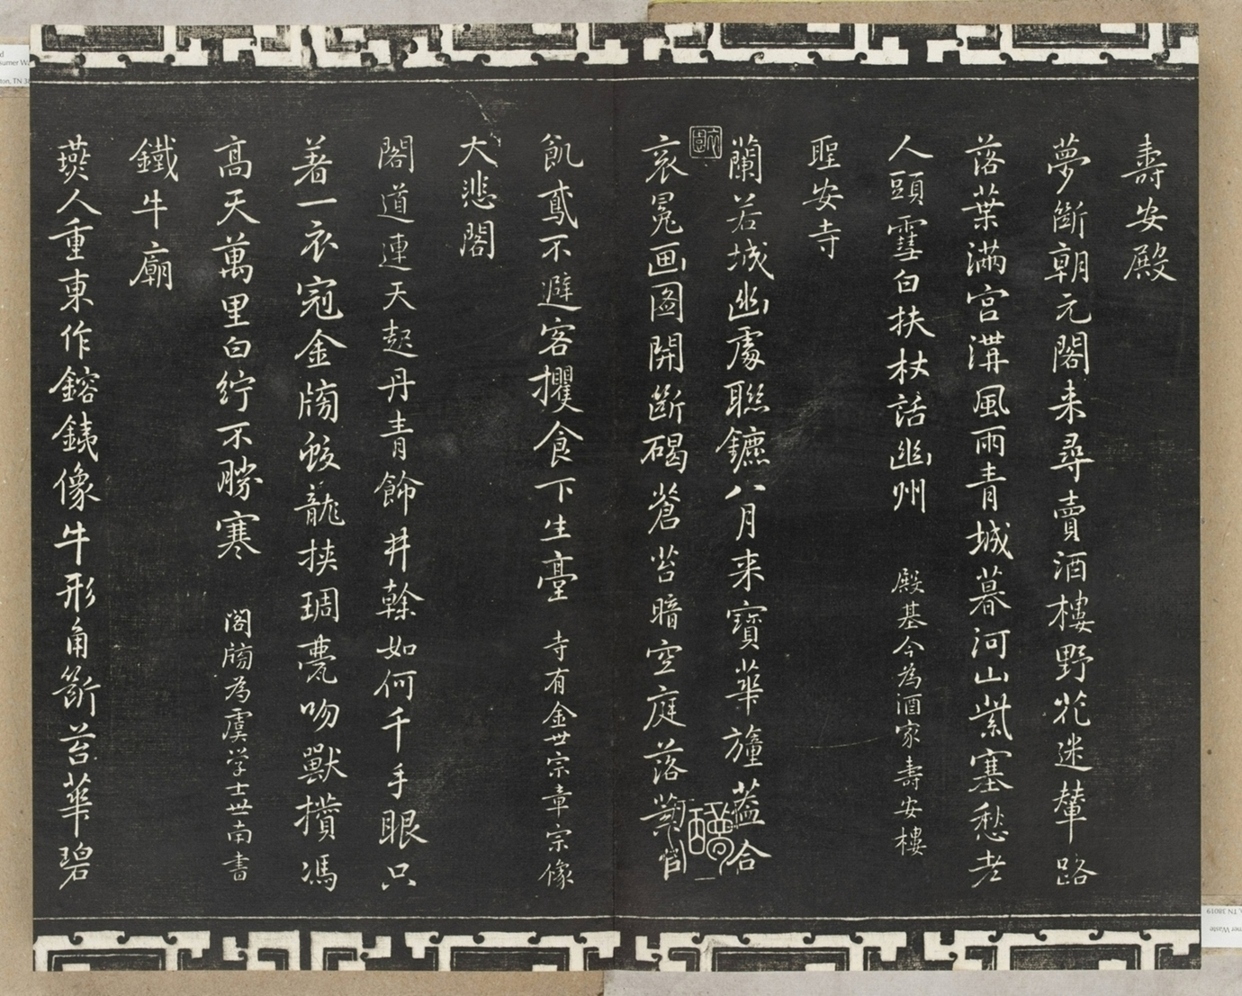 壽安殿
夢斷朝元閣来尋賣酒樓野花迷輦路
落葉滿宫溝風雨青城暮河山紫塞愁老
人頭雪白扶杖話幽州 殿基今為酒家壽安樓
聖安寺
蘭若城幽處聯鑣八月来寶華幢蓋合
衮冕画圖開斷碣蒼苔暗空庭落葉
飢鳶不避客攫食下生臺 寺有金世宗章宗像
大悲閣
閣道連天起丹青飾井榦如何千手眼只
著一衣冠金牓蛟龍挾琱甍吻獸攢馮
高天萬里白紵不勝寒 閣牓為虞学士世南書
鐵牛廟
燕人重東作鎔鐵像牛形角斷苔華碧